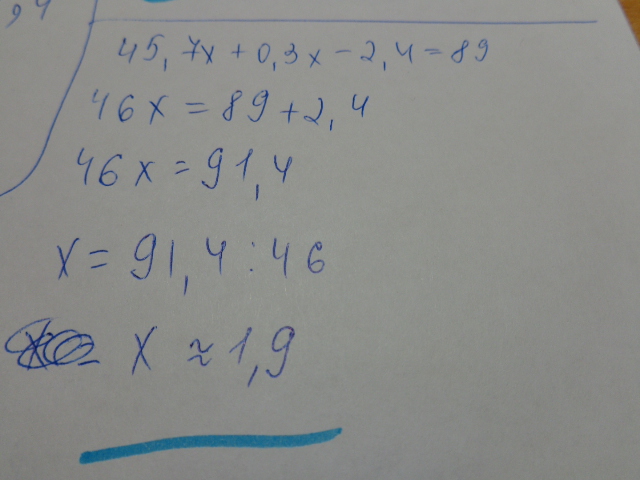 ,4
45,7x+0,3x-2,4=89
46x=89+2,4
46x=91,4
x=91,4:46
x≈1,9